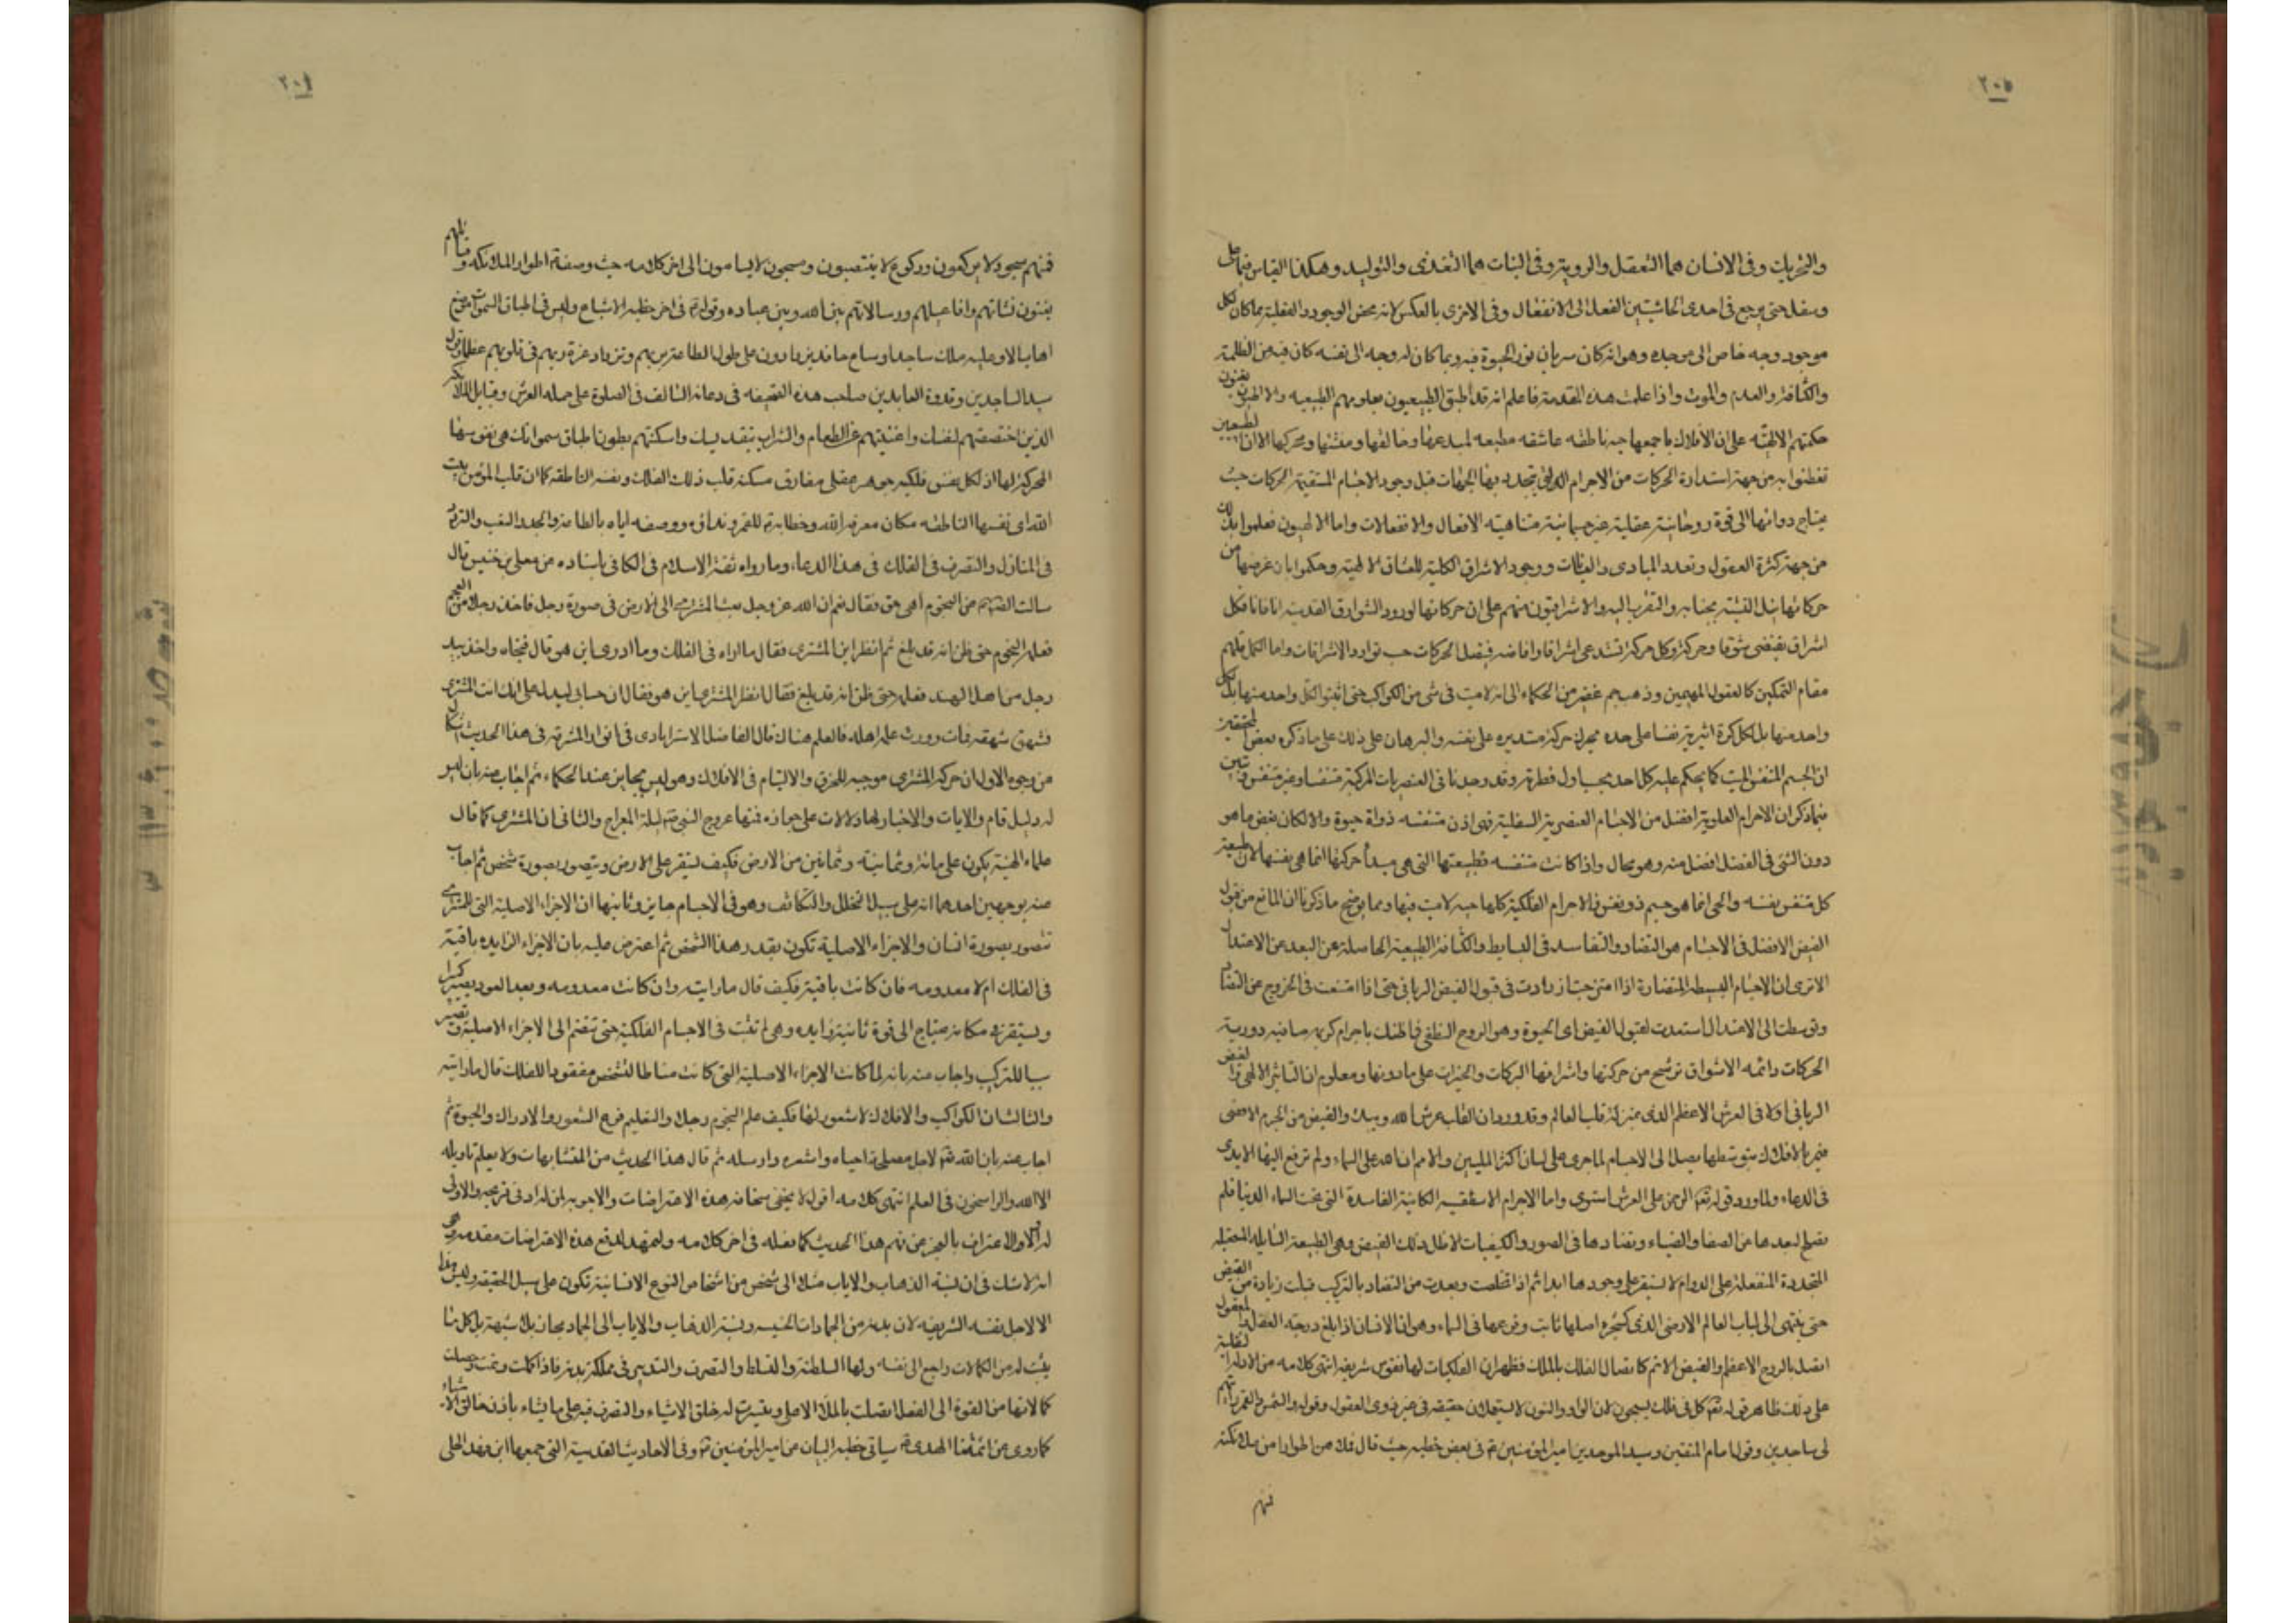 ٢٠٥
والتحريك وفى الانسان هما التعقل والروية وفى النبات هما التغذى والتوليد وهكذا القياس فيما على
وسفل حتى يرجع فى احدى الحاشيتين الفعل الى الانفعال وفى الاخرى بالعكس لانه محض الوجود والفعلية بما كان لكل
موجود وجه خاص الى موجده وهو انه كان سريان نور الحيوة فيه وبما كان له وجه الى نفسه كان فيه من الظلمة
والكثافة والعدم والموت واذا علمت هذه المقدمة فاعلم انه قد أطبق الطبيعيون بعلومهم الطبيعيه والالهيون
حكمتهم الالهيّه على ان الافلاك باجمعها حيه ناطقه عاشقه مطيعه لمبدعها وخالقها ومنشئها ومحركها الا ان الطبيعيين
تفطنوا به من جهة استدارة الحركات من الاجرام التى يتحدد بها الجهات قبل وجود الاجسام المستقيمة الحركات حيث
يحتاج دوامها الى قوة روحانية عقلية غير جسمانية متناهية الافعال والانفعالات واما الالهيون فعلموا ذلك
من جهة كثرة العقول وتعدد المبادى والغايات ووجود الاشراق الكلية للعشاق الالهية وحكموا بان غرضها من
حركاتها نيل التشبه بجنابه والتقرب اليه والاشراقيون منهم على ان حركاتها لورود الشوارق القدسيه انا فانا فكل
اشراق يقتضى شوقا وحركة وكل حركة تستدعى اشراقا وافاضه فتصل الحركات حسب توارد الاشراقات واما الكمل فلهم
مقام التمكين كالعقول المهيمين وذهب جم غفير من الحكماء الى انه لاميت فى شئ من الكواكب حتى اثبتوا لكل واحد منها بل لكل
واحد منها بل لكل كرة اثيرية نفسا على حده تحرك حركة مستديره على نفسه والبرهان على ذلك على ما ذكره بعض المحققين
ان الجسم المتنفس الميت كما يحكم عليه كل احد بحسب اول فطرته وقد وجدنا فى العنصريات المركبة متنفسا وغير متنفس
فيما ذكر ان الاجرام العلوية افضل من الاجسام العنصرية السفلية فهى اذن متنفسه ذوات حيوة والا لكان بعض ما هو
دون الشئ فى الفضل افضل منه وهو محال واذا كانت متنفسه فطبيعتها التى هى مبدأ حركتها انما هى نفسها لان طبيعة
كل متنفس نفسه والحى انما هو جسم ذو نفس فالاجرام الفلكية كلها حيه لاميت فيها ومما يوضح ما ذكرنا ان المانع من قبول
الفيض الافضل فى الاجسام هو التضاد والتفاسد فى البسايط والكثافة الطبيعية الحاصلة عن البعد عن الاعتدال
الاترى ان الاجسام البسيطه المتضادة اذا امتزجت ازدادت فى قبول الفيض الربانى حتى اذا امتنعت فى الخروج عن التضاد
وتوسطت الى الاعتدال استعدت لقبول الفيض اى الحيوة وهو الروح النطقى فما ظنك باجرام كريمه صافيه دورية
الحركات دائمه الاشواق ترشح من حركتها واشراقها البركات والخيرات على مادونها ومعلوم ان التاثير الالهى والفيض
الربانى اولا فى العرش الاعظم الذى بمنزلة قلب العالم وقد ورد ان القلب عرش الله وبيته والفيض من الجرم الاقصى
فيمر بالافلاك بتوسطها يصل الى الاجسام لما جرى على لسان اكثر المليين والامم ان الله على السماء ولم ترفع اليها الايدى
فى الدعاء ولما ورد قوله تعم الرحمن على العرش استوى واما الاجرام الاسطقسيه الكائنة الفاسدة التى تحت السماء الدنيا فلم
تصلح لبعدها من الصفاء والضياء وتضادها فى الصور والكيفيات لاظلال ذلك الفيض وهى الطبيعة السائله المتصله
المتجددة المنفعلة على الدوام لا تستقر على وجودها ابدا ثم اذا تخلصت وبعدت من التضاد بالتركيب قبلت زيادة من الفيض
حتى ينتهى الى لباب العالم الارضى الذى كشجرة اصلها ثابت وفرعها فى السماء وهو ان الانسان اذا بلغ درجة العقل والمعقول
اتصل بالروح الاعظم والفيض الاتم كاتصال الفلك بالملك فظهر ان الفلكيات لها نفوس شريفه انتهى كلامه من الادلة النقلية
على ذلك ظاهر قوله تعم كل فى فلك يسبحون لان الواو والنون لا يستعملان حقيقه فى غير ذوى العقول وقوله والشمس والقمر رايتهم
لى ساجدين وقول امام المتقين وسيد الموحدين امير المؤمنين ع فى بعض خطبه حيث قال فملاهن اطوارا من ملائكته
فمنهم
٢٠٦
فمنهم سجود لا يركعون وركوع لا ينتصبون ومسبحون لا يسامون الى اخر كلامه حيث وصف ع اطوار الملائكه وقبائلهم
بفنون نشاتهم وافاعيلهم ورسالاتهم بين الله وبين عباده وقوله ع فى اخر خطبة الاشباح وليس فى اطباق السموات موضع
اهاب الا وعليه ملك ساجد او ساع حافد يزدادون على طول الطاعة بربهم ويزداد عزة ربهم فى قلوبهم عظما وقول
سيد الساجدين وقدوة العابدين صاحب هذه الصحيفه فى دعائه الثالث فى الصلوة على حمله العرش وقبائل الملائكة
الذين اختصصتهم لنفسك واغنيتهم عن الطعام والشراب بتقديسك واسكنتهم بطون اطباق سمواتك هى نفوسها
المحركة لها اذ لكل نفس فلكيه جوهر عقلى مفارق مسكنه قلب ذلك الفلك ونفسه الناطقه كما ان قلب المؤمن بيت
الله اى نفسها الناطقه مكان معرفة الله وخطابه ع للقمر وندائه ووصفه اياه بالطاعة والجد والتعب والتردد
فى المنازل والتصرف فى الفلك فى هذا الدعاء وما رواه ثقة الاسلام فى الكافى باسناده عن معلى بن خنيس قال
سالت الص ع عن النجوم أهى حق فقال نعم ان الله عز وجل بعث المشترى الى الارض فى صورة رجل فاخذ رجلا من العجم
فعلمه النجوم حتى ظن انه قد بلغ ثم انظر اين المشترى فقال ما اراه فى الفلك وما ادرى اين هو قال فنحاه واخذ بيد
رجل من اهل الهند فعلمه حتى ظن انه قد بلغ فقال انظر المشترى اين هو فقال ان حسابى ليدل على انك انت المشترى
فشهق شهقة فمات وورث علمه اهله فالعلم هناك قال الفاضل الاسترابادى فى انوار المشرقه فى هذا الحديث اشكال
من وجوه الاول ان حركة المشترى موجبه للخرق والالتيام فى الافلاك وهو ليس بجايز عند الحكماء ثم اجاب عنه بان ليس
له دليل قام والايات والاخبار لها دلالات على جوازه فمنها عروج النبى ص ليلة المعراج والثانى ان المشترى كما قال
علماء الهيئة يكون على مائة وثمانية وثمانين من الارض فكيف يستقر على الارض ويتصور بصورة شخص ثم اجاب
عنه بوجهين احدهما انه على سبيل التخلل والتكاثف وهو فى الاجسام جايز وثانيها ان الاجزاء الاصلية التى للمشترى
تتصور بصورة انسان والاجزاء الاصلية تكون بقدر هذا الشخص ثم اعترض عليه بان الاجزاء الزايده باقية
فى الفلك ام لا معدومه فان كانت باقية فكيف قال ما رايته وان كانت معدومه وبعد العود يصير كبيرا
ويستقر فى مكانه محتاج الى قوة ثانية زايده وهى لم تثبت فى الاجسام الفلكية حتى تنضم الى الاجزاء الاصلية وتصير
سببا للتركيب واجاب عنه بانه لما كانت الاجزاء الاصلية التى كانت مناطا للشخص مفقودا للفلك قال ما رايته
والثالث ان الكواكب والافلاك لا شعور لها فكيف علم النجوم رجلا والتعليم فرع الشعور والادراك والحيوة ثم
اجاب عنه بان الله تعم لاجل مصلحة احياه واشعره وارسله ثم قال هذا الحديث من المتشابهات ولا يعلم تاويله
الا الله والراسخون فى العلم انتهى كلامه اقول لا يخفى سخافة هذه الاعتراضات والاجوبه
له الا الاعتراف بالعجز عن فهم هذا الحديث كما فعله فى اخر كلامه ولنمهد لدفع هذه الاعتراضات مقدمه وهى
انه لا شك فى ان نسبة الذهاب والاياب مثلا الى شخص من اشخاص النوع الانسانية تكون على سبيل الحقيقه وليس هذا
الا لاجل نفسه الشريفه لان بدنه من الجمادات الخسيسه ونسبة الذهاب والاياب الى الجماد مجاز بلا شبهة بل كل ما
يثبت له من الكمالات راجع الى نفسه ولها السلطنة والتسلط والتصرف والتدبير فى مملكة بدنه فاذا كملت وتمت وحصلت
كمالاتها من القوة الى الفعل اتصلت بالملأ الاعلى ويتيسر له خلق الاشياء والتصرف فيه على ما يشاء باذن خالق الاشياء
كما روى عن ائمتنا الهدى ع سياتى خطبة البيان عن امير المؤمنين ع وفى الاحاديث القدسية التى جمعها ابن فهد الحلى